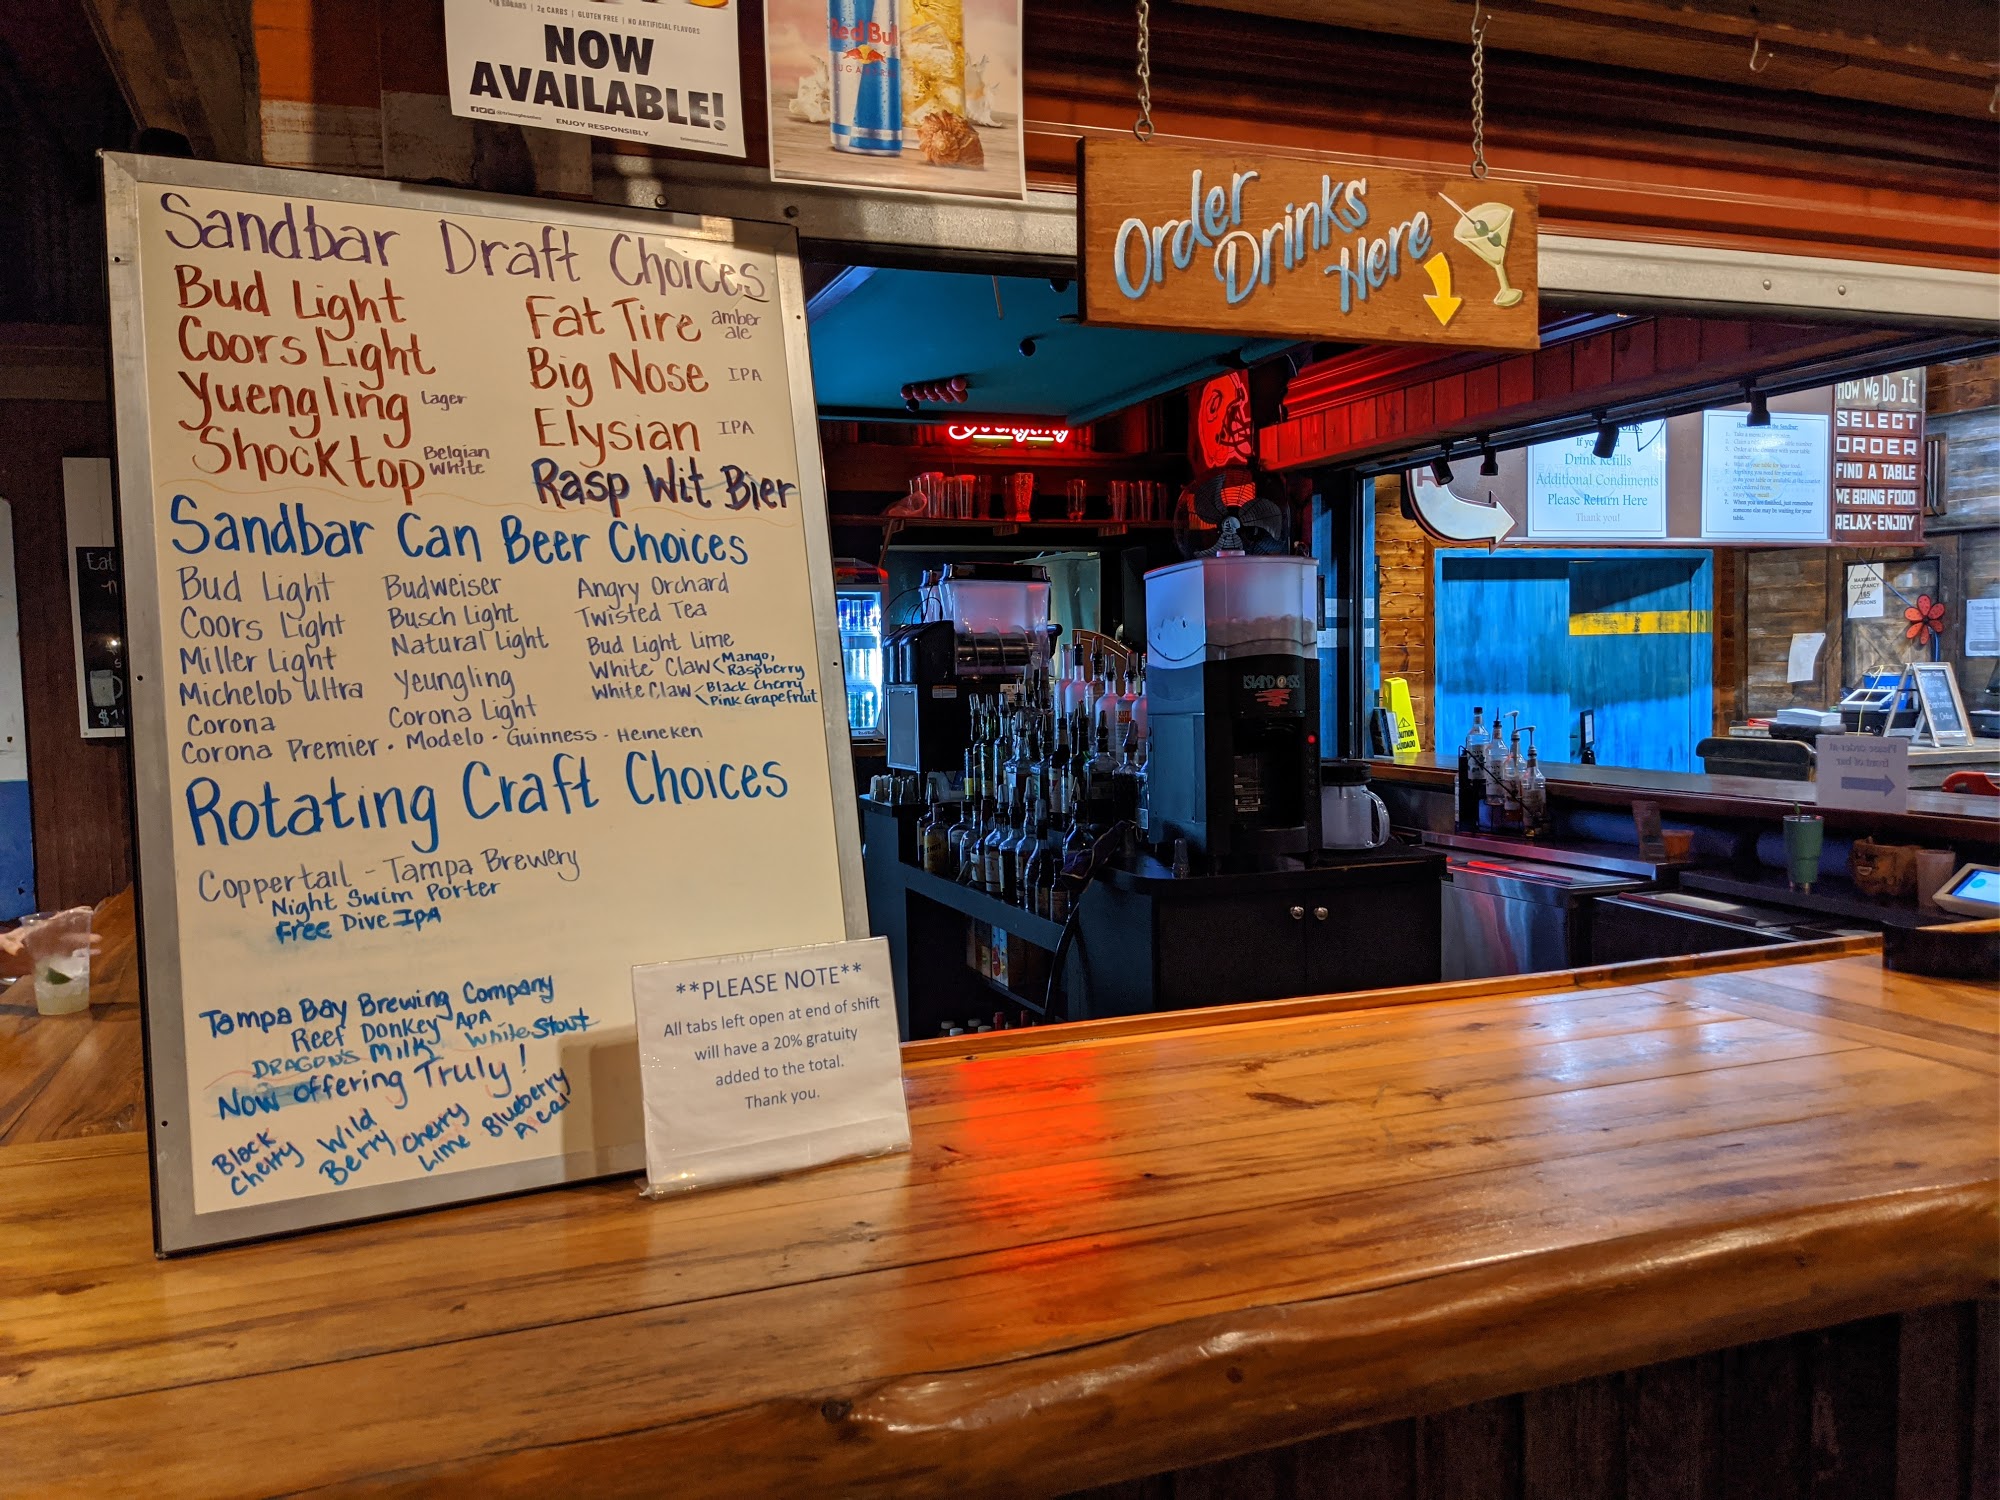 2g CARBS | GLUTEN FREE | NO ARTIFICIAL FLAVORS
NOW
AVAILABLE!
ENJOY RESPONSIBLY
Red Bull
Order
Drinks
Here
Sandbar Draft Choices
Bud Light
Coors Light
Yuengling Lager
Shocktop Belgian White
Fat Tire amber ale
Big Nose IPA
Elysian IPA
Rasp Wit Bier
Sandbar Can Beer Choices
Bud Light
Coors Light
Miller Light
Michelob Ultra
Corona
Budweiser
Busch Light
Natural Light
Yeungling
Corona Light
Angry Orchard
Twisted Tea
Bud Light Lime
White Claw < Mango, Raspberry
White Claw < Black Cherry Pink Grapefruit
Corona Premier · Modelo · Guinness - Heineken
Rotating Craft Choices
Coppertail - Tampa Brewery
Night Swim Porter
Free Dive IPA
Tampa Bay Brewing Company
Reef Donkey APA
DRAGON'S Milk White Stout
Now offering Truly!
Black Cherry
Wild Berry
Cherry Lime
Blueberry Acai
**PLEASE NOTE**
All tabs left open at end of shift
will have a 20% gratuity
added to the total.
Thank you.
Yuengling
ISLAND OASIS
Drink Refills
Additional Condiments
Please Return Here
Thank you!
How We Do It
SELECT
ORDER
FIND A TABLE
WE BRING FOOD
RELAX-ENJOY
MAXIMUM
OCCUPANCY
165
PERSONS
CAUTION
CUIDADO
Please order at
front of bar
Eat